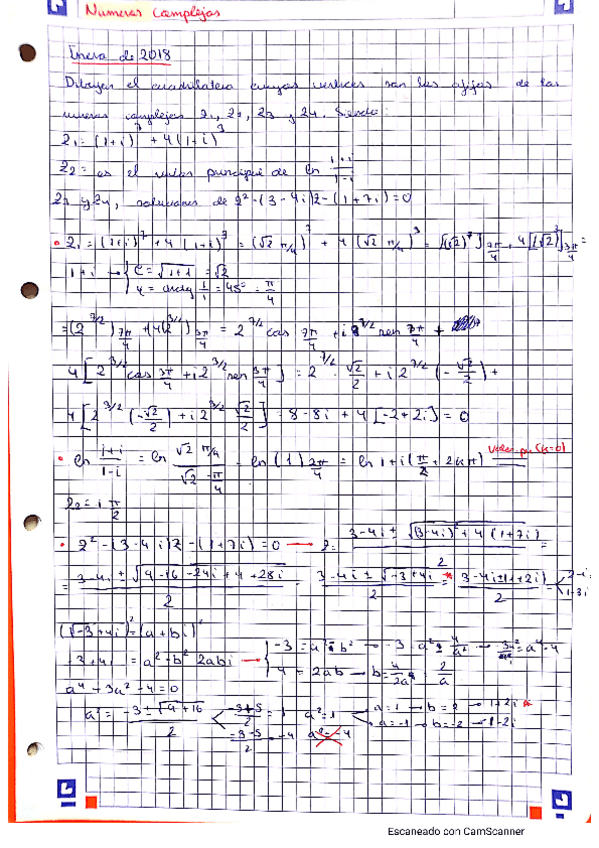 Numeros complejos
Enero de 2018
Dibujar el cuadrilatero cuyos vertices son los afijos de los
numeros complejos z₁, z₂, z₃ y z₄. Siendo:
z₁ = (1+i)⁷ + 4(1+i)³
z₂ = es el valor principal de ln (1+i)/(1-i)
z₃ y z₄, soluciones de z² - (3-4i)z - (1+7i) = 0
• z₁ = (1+i)⁷ + 4(1+i)³ = (√2 π/4)⁷ + 4(√2 π/4)³ = [(√2)⁷] 7π/4 + 4[(√2)³] 3π/4 =
1+i → { = √1+1 = √2
= 45° = π/4
= (2^7/2) 7π/4 + (4(2^3/2)) 3π/4 = 2^7/2 cos 7π/4 + i 2^7/2 sen 7π/4 +
4[2^3/2 cos 3π/4 + i 2^3/2 sen 3π/4] = 2^7/2 · √2/2 + i 2^7/2 (-√2/2) +
4[2^3/2 (-√2/2) + i 2^3/2 √2/2] = 8-8i + 4[-2+2i] = 0
• ln (1+i)/(1-i) = ln (√2 π/4)/(√2 -π/4) = ln (1) 2π/4 = ln 1 + i(π/2 + 2kπ) (k=0)
z₂ = i π/2
• z² - (3-4i)z - (1+7i) = 0 → z = (3-4i ± √(3-4i)² + 4(1+7i))/2 =
= (3-4i ± √9-16-24i+4+28i)/2 = (3-4i ± √-3+4i *)/2 = (3-4i ± (1+2i))/2 = < 2-i
1-3i
(√-3+4i)² = (a+bi)²
-3+4i = a² - b² 2abi → { -3 = a² - b² → -3 = a² - 4/a² → -3a² = a⁴ - 4
4 = 2ab → b = 4/2a = 2/a
a⁴ + 3a² - 4 = 0
a² = (-3 ± √9+16)/2 < (-3+5)/2 = 1 a² = 1 < a = 1 → b = 2 → 1+2i *
a = -1 → b = -2 → -1-2i
(-3-5)/2 = -4 a² = -4
Escaneado con CamScanner